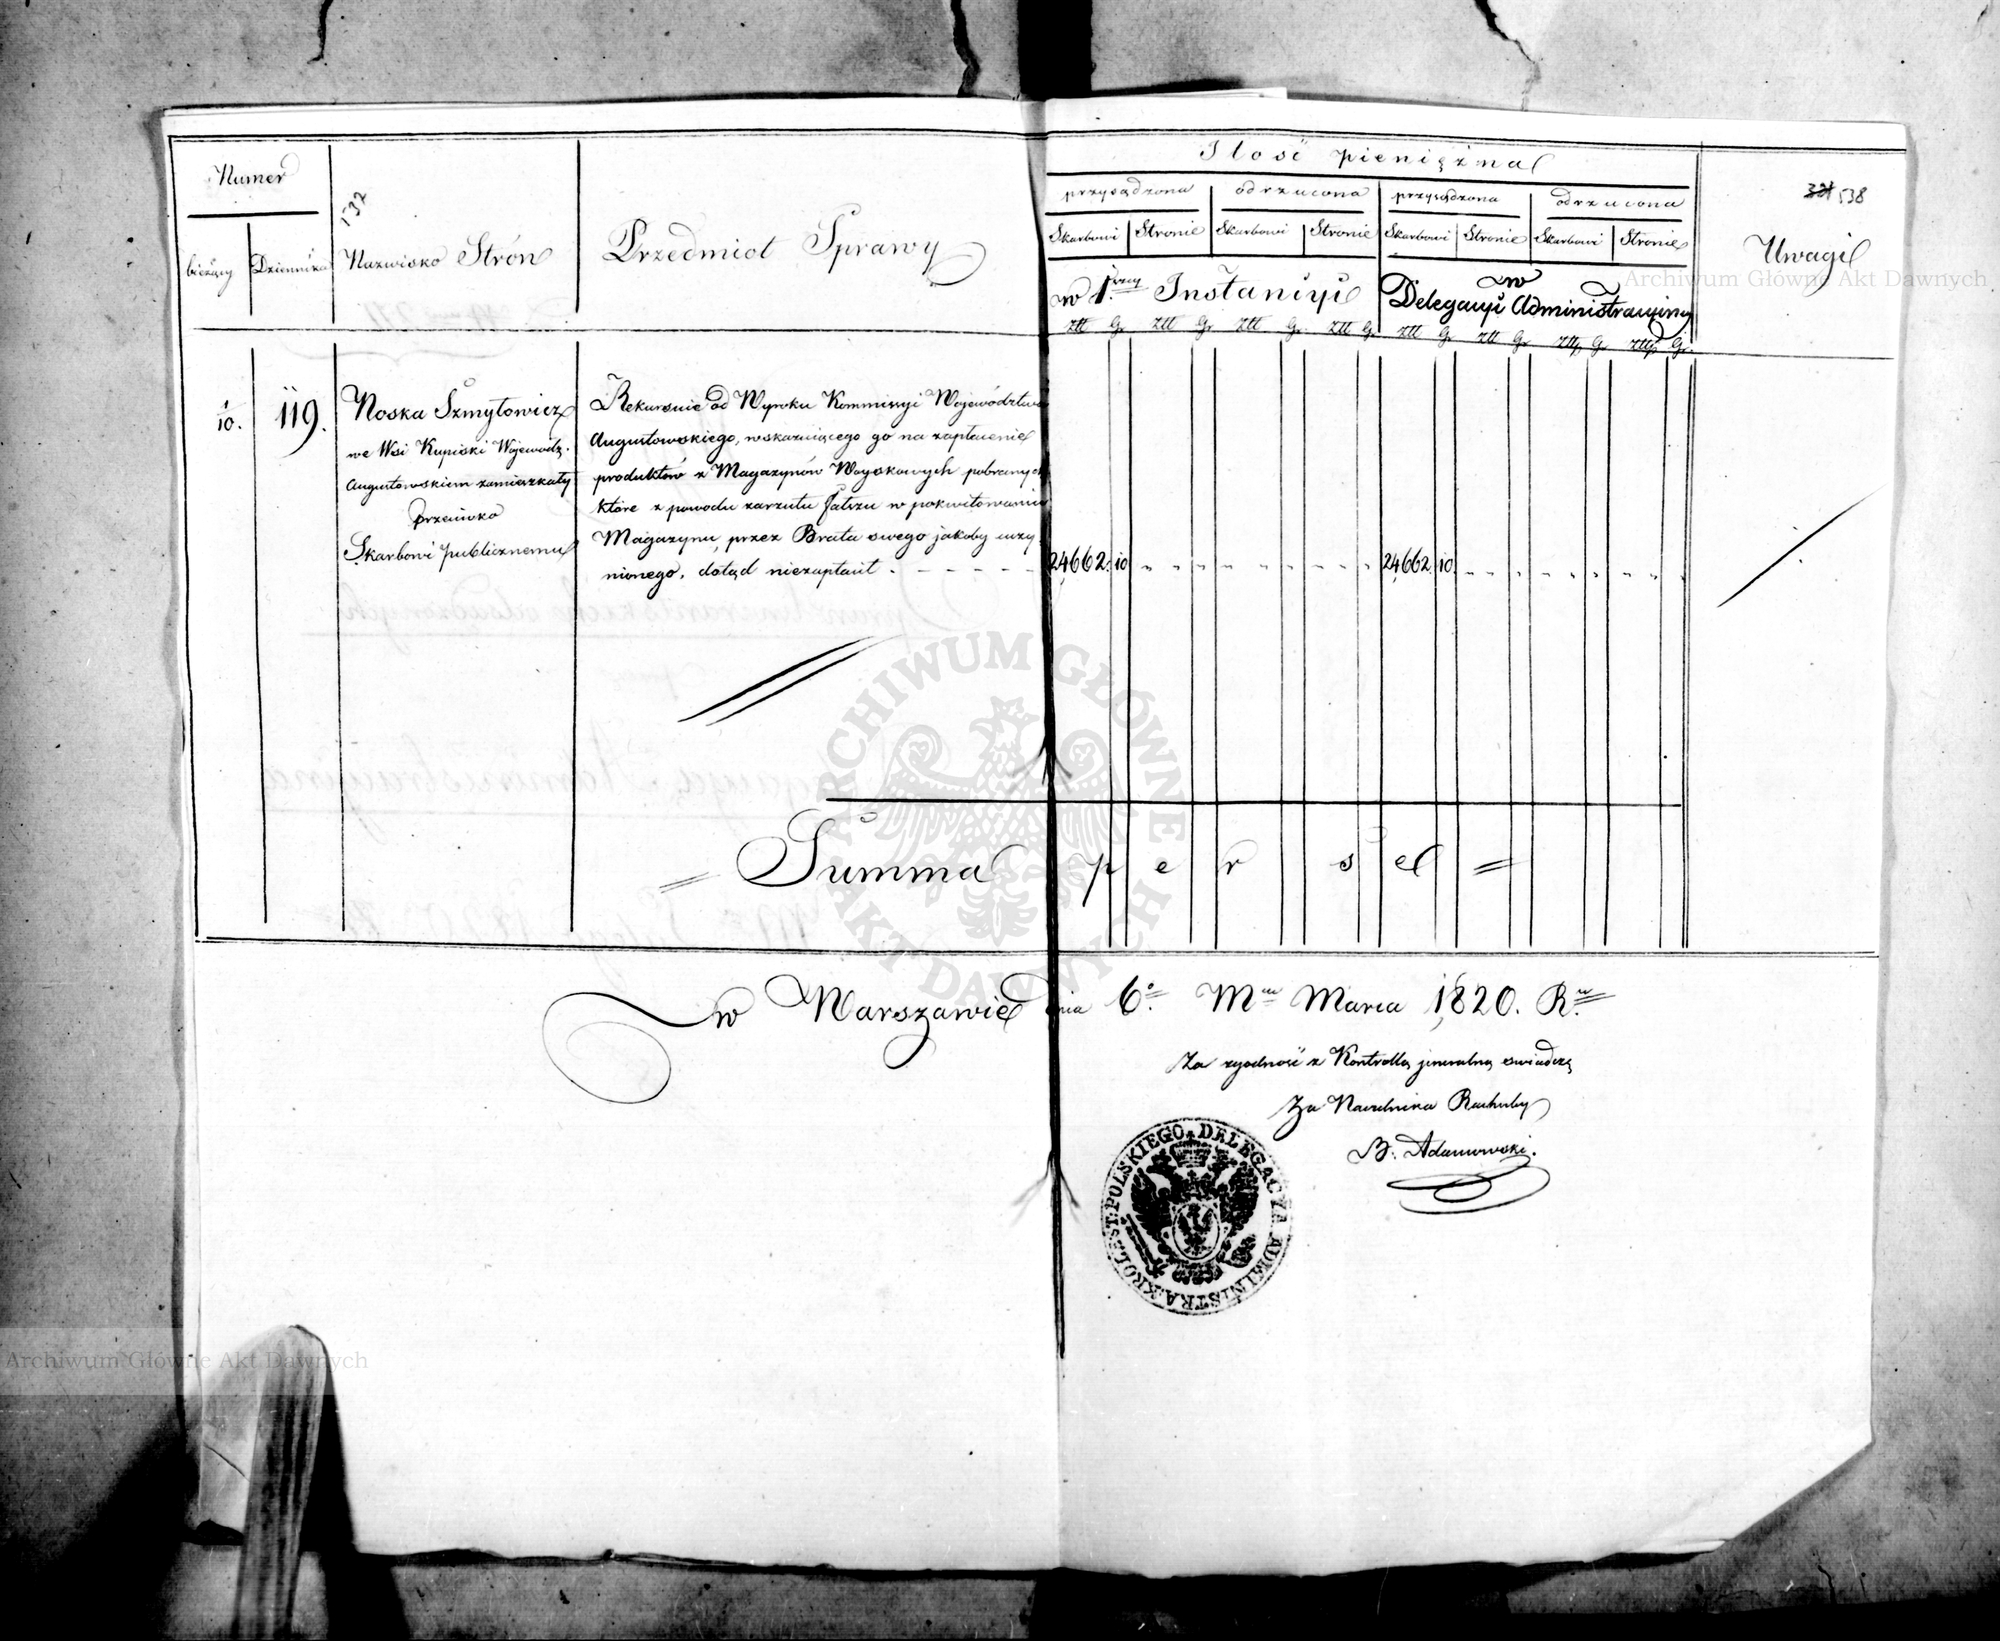 Ilość pieniężna
Numer
przysądzona
odrzucona
przysądzona
odrzucona
321 538
532
Skarbowi
Stronie
Skarbowi
Stronie
Skarbowi
Stronie
Skarbowi
Stronie
bieżący
Dziennika
Nazwisko Strón
Przedmiot Sprawy
Uwagi
w 1wszey Instancyi
w
Delegacyi Administracyiney
Złł Gr Złł Gr Złł Gr Złł Gr Złł Gr Złł Gr Złł Gr Złł Gr
1/10.
119.
Noska Szmytowicz
we Wsi Kupiski Wojewódz.
Augustowskiem zamieszkały
przeciwko
Skarbowi publicznemu
Rekursuie od Wyroku Kommissyi Województwa
Augustowskiego, wskazuiącego go na zapłacenie
produktów z Magazynów Woyskowych pobranych
które z powodu zarzutu fałszu w pokwitowaniu
Magazynu, przez Brata swego jakoby uczy-
nionego, dotąd niezapłacił.
24,662. 10
24,662. 10.
= Summa per se =
w Warszawie dnia 6o Mca Marca 1820. R.
Za zgodność z Kontrollą jeneralną świadczę
Za Naczelnika Rachuby
B. Adamowski.
KROLEST: POLSKIEGO DELEGACYA ADMINISTRA:
ARCHIWUM GŁÓWNE AKT DAWNYCH
Archiwum Główne Akt Dawnych
Archiwum Główne Akt Dawnych